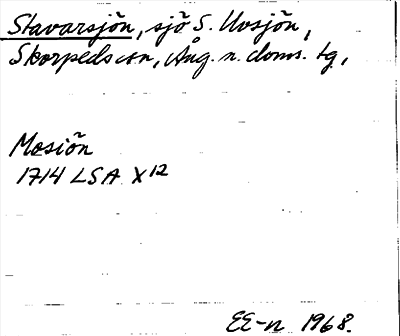 Stavarsjön, sjö S. Uvsjön,
Skorpeds sn, Ång. n. doms. tg,
Mosjön
1714 LSA X12
EE-n 1968.